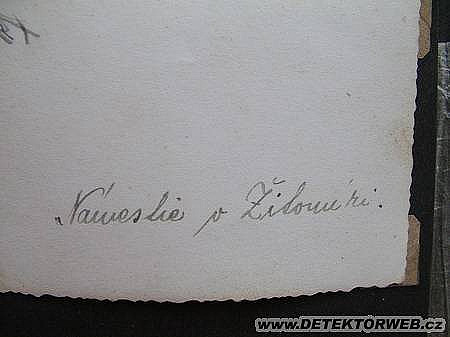 „Námestie v Žitomíri.
WWW.DETEKTORWEB.CZ